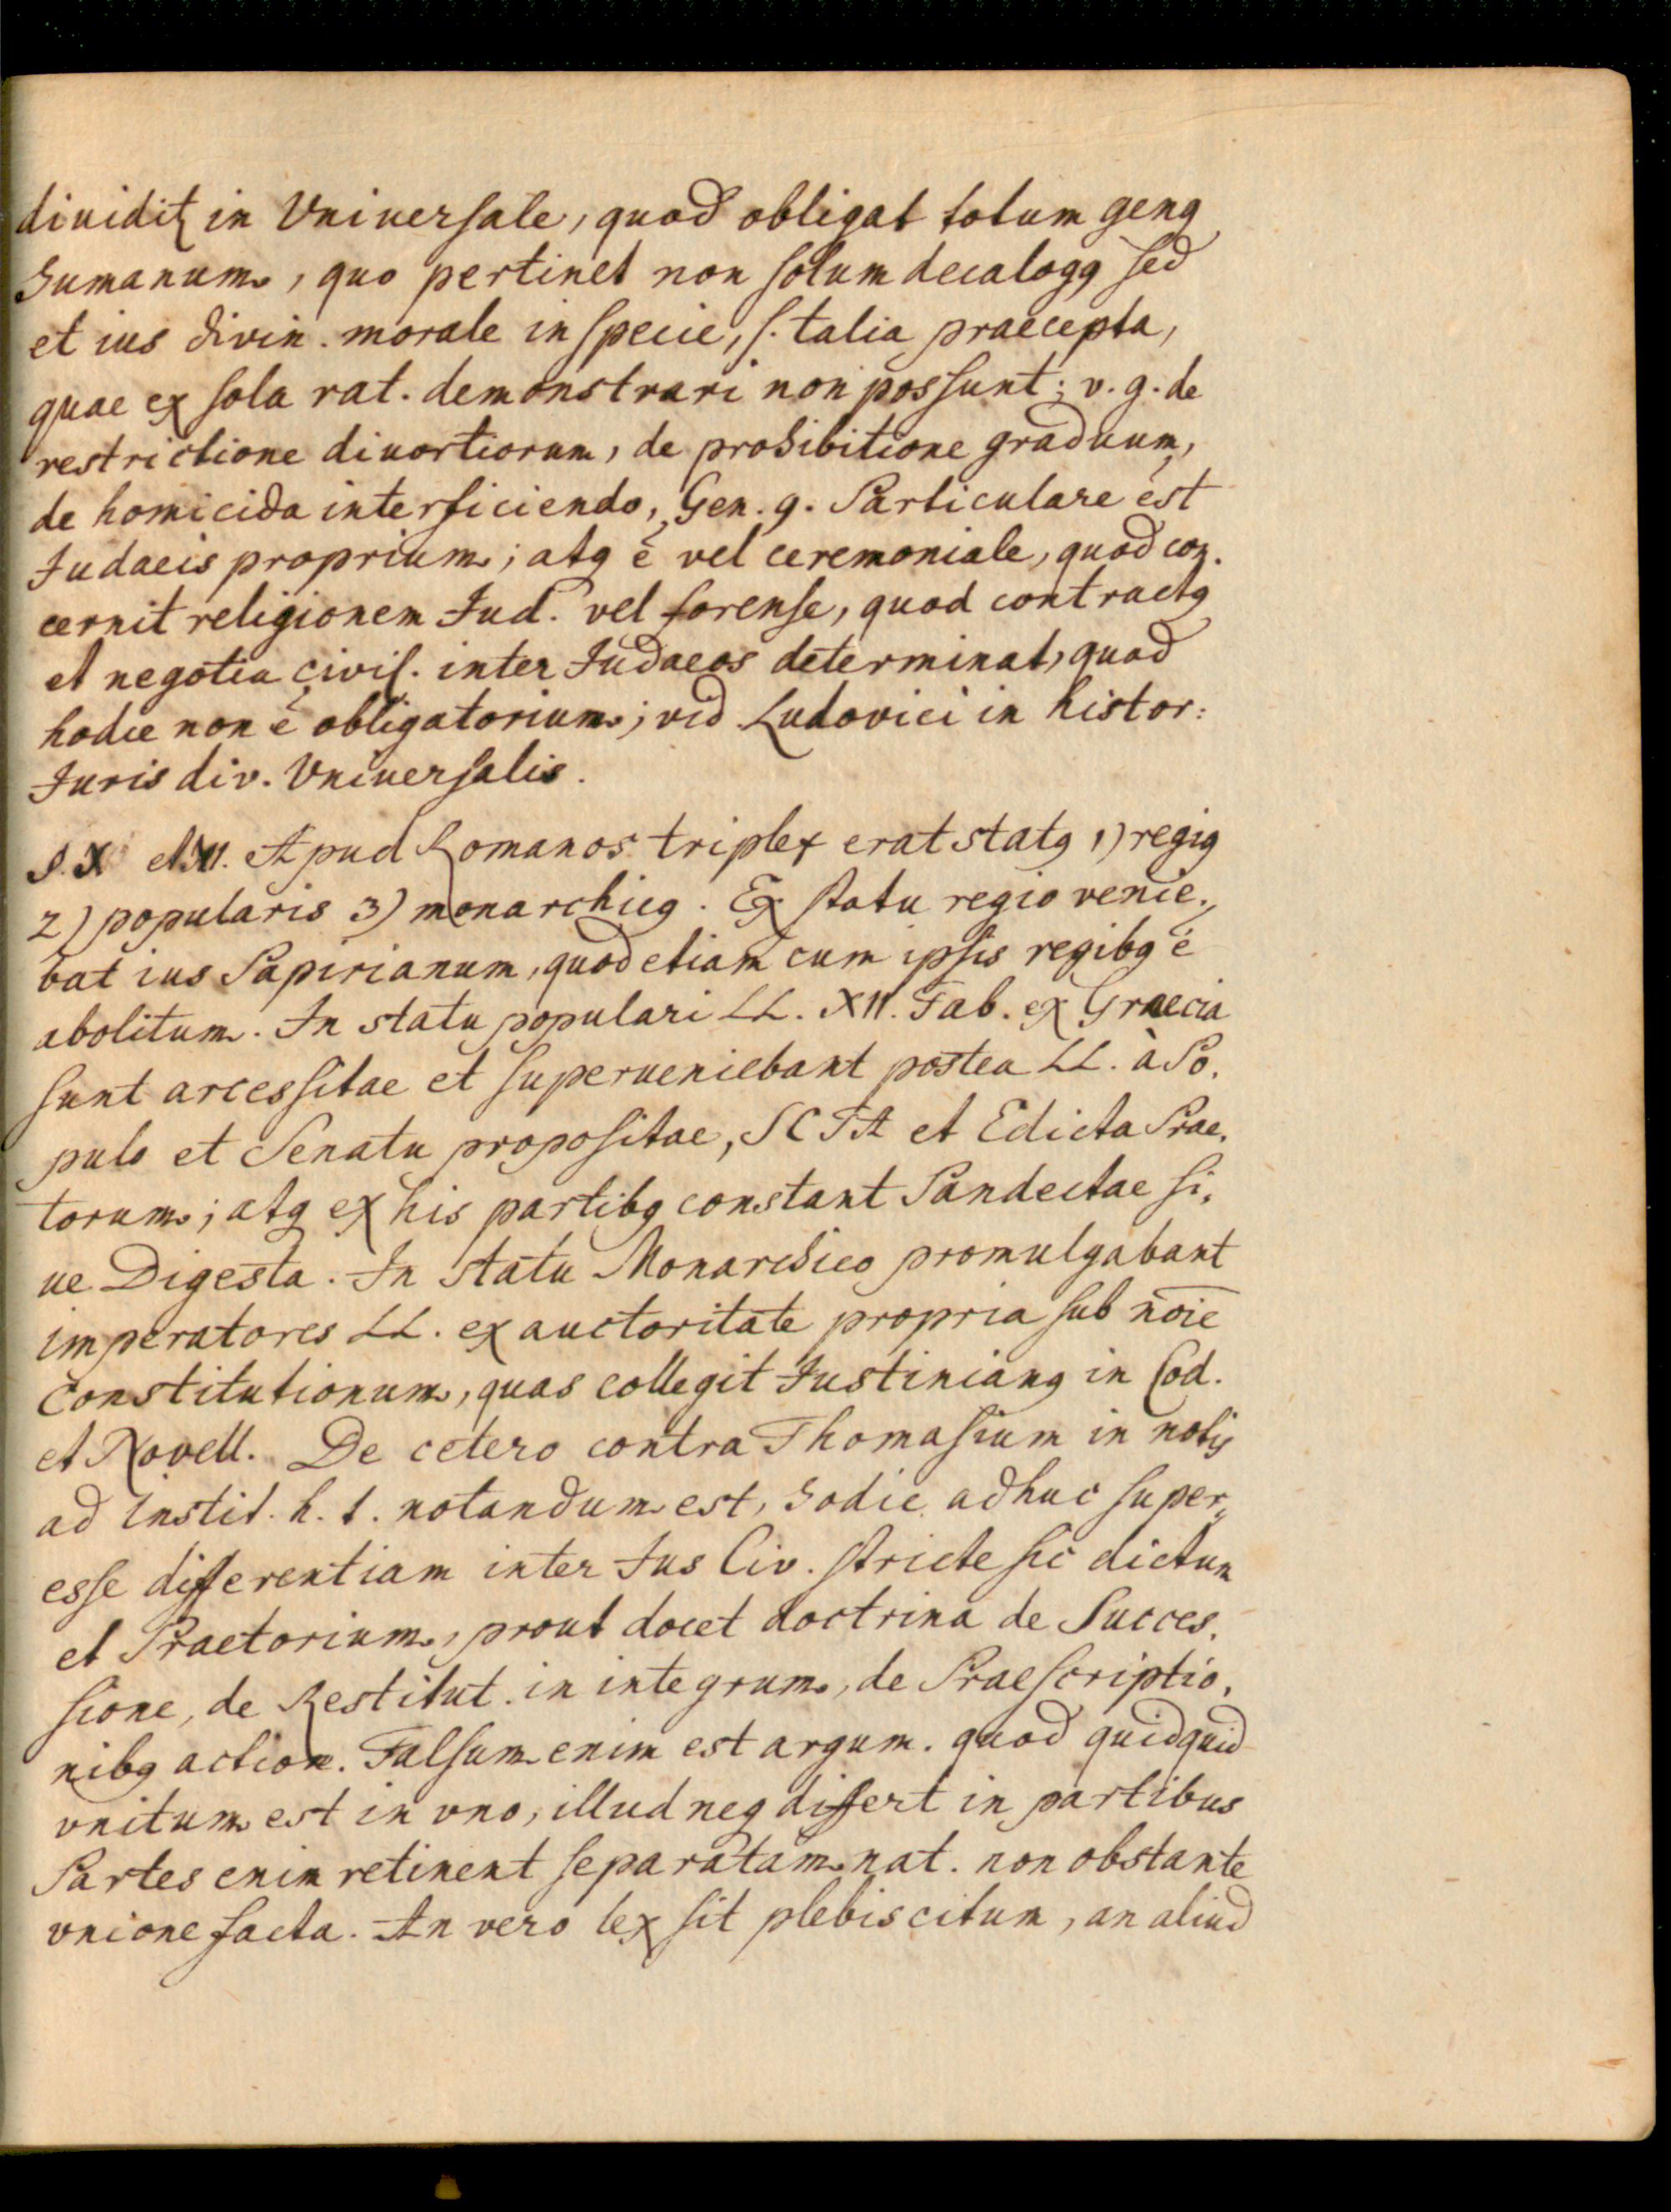 dividitꝛ in Vniuersale, quod obligat totum genꝰ
humanum, quo pertinet non solum decalogꝰ sed
et ius divin. morale in specie, s. talia praecepta,
quae ex sola rat. demonstrari non possunt; v. g. de
restrictione diuortiorum, de prohibitione graduum,
de homicida interficiendo, Gen. 9. Particulare est
Judaeis proprium; atq ē vel ceremoniale, quod con-
cernit religionem Jud. vel forense, quod contractꝰ
et negotia civil. inter Judaeos determinat, quod
hodie non ē obligatorium; vid Ludovici in histor:
Juris div. Vniuersalis.
§. X et XI. Apud Romanos triplex erat statꝰ 1) regiꝰ
2) popularis 3) monarchicꝰ. Ex statu regio venie-
bat ius Papirianum, quod etiam cum ipsis regibꝰ ē
abolitum. In statu populari LL. XII. Tab. ex Graecia
sunt arcessitae et superueniebant postea LL. à Po-
pulo et Senatu propositae, SCTA et Edicta Prae-
torum; atq ex his partibꝰ constant Pandectae si-
ue Digesta. In statu Monarchico promulgabant
imperatores LL. ex auctoritate propria sub noīe
Constitutionum, quas collegit Justinianꝰ in Cod.
et Novell. De cetero contra Thomasium in notis
ad Instit. h. t. notandum est, hodie adhuc super-
esse differentiam inter Jus Civ. stricte sic dictum
et Praetorium, prout docet doctrina de Succes-
sione, de Restitut. in integrum, de Praescriptio-
nibꝰ action. Falsum enim est argum. quod quidquid
vnitum est in vno, illud neq differt in partibus
Partes enim retinent separatam nat. non obstante
vnione facta. An vero lex sit plebiscitum, an aliud